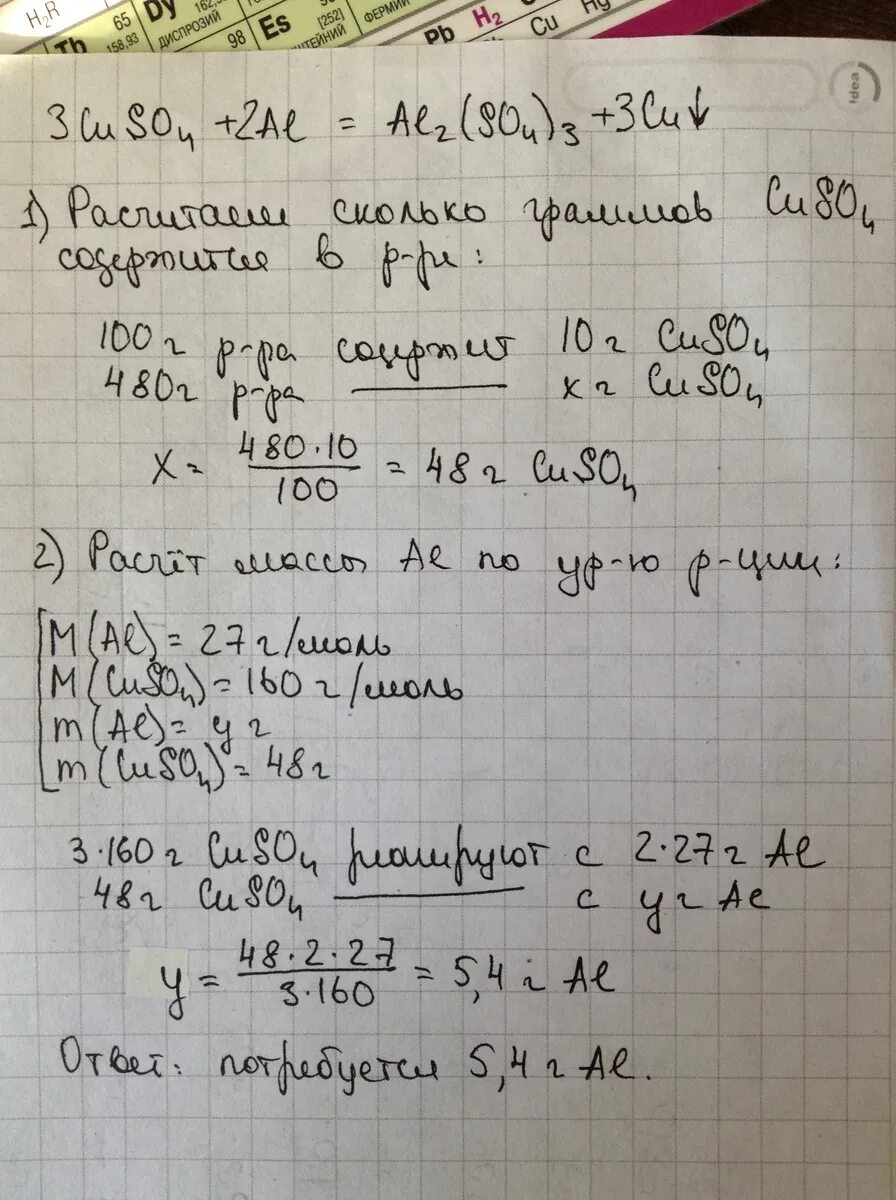 H₂R
65
Tb
158,93
Dy
162,5
ДИСПРОЗИЙ
98
Es
[252]
ФЕРМИЙ
Pb
H₂
Cu
Hg
idea
3CuSO₄ +2Al = Al₂(SO₄)₃ +3Cu↓
1) Расчитаем сколько граммов CuSO₄
содержится в р-ре:
100г р-ра содержит 10г CuSO₄
480г р-ра ——— x г CuSO₄
x = 480·10/100 = 48 г CuSO₄
2) Расчёт массы Al по ур-ю р-ции:
M(Al) = 27 г/моль
M(CuSO₄) = 160 г/моль
m(Al) = y г
m(CuSO₄) = 48г
3·160 г CuSO₄ реагируют с 2·27 г Al
48 г CuSO₄ ——— с y г Al
y = 48·2·27/3·160 = 5,4 г Al
Ответ: потребуется 5,4 г Al.